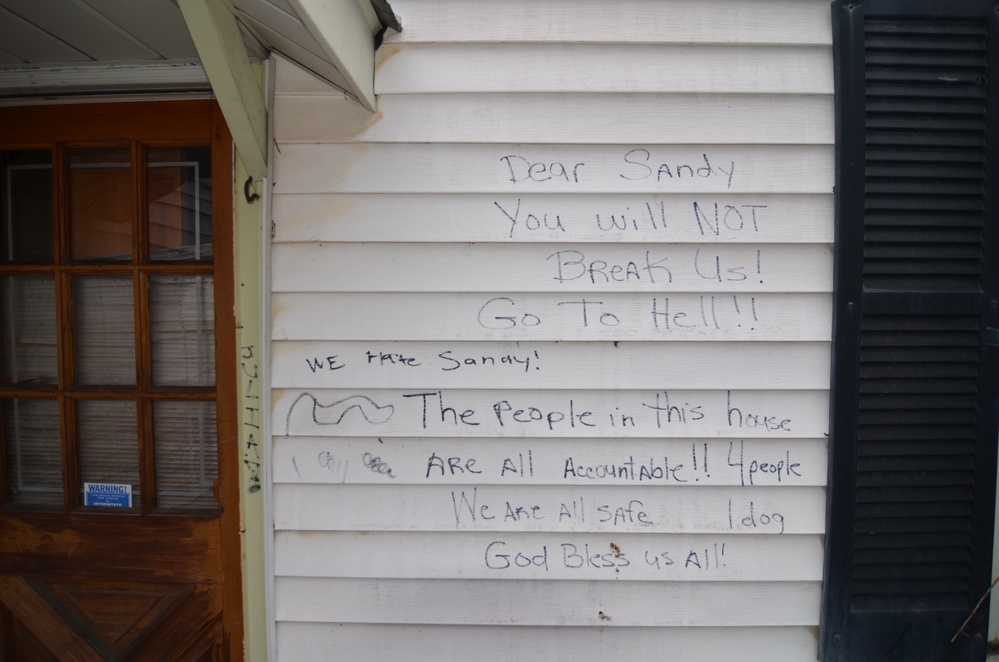 Dear Sandy
You will NOT
BReaK Us!
Go To Hell!!
WE Hate Sandy!
The People in this house
ARe All Accountable!! 4 people
We Are All safe 1 dog
God Bless us All!
WARNING!